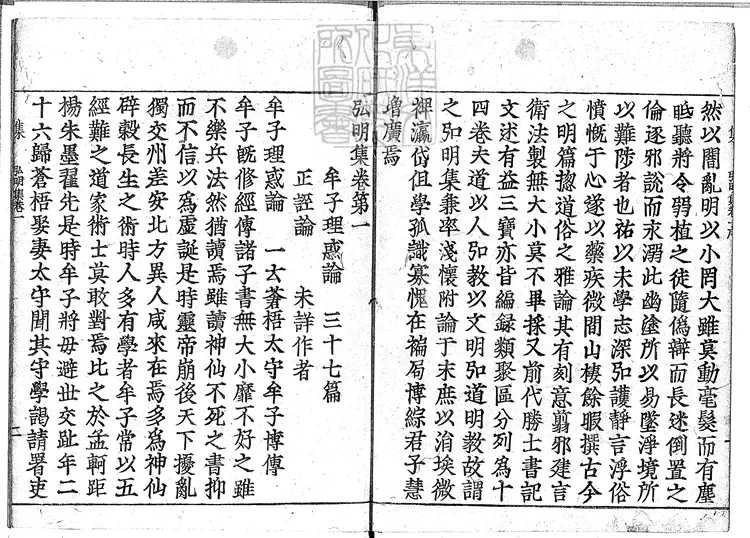 然以闇亂明以小罔大雖莫動毫髮而有塵
眎聽將令弱植之徒隨僞辯而長迷倒置之
倫逐邪說而永溺此幽塗所以易墜淨境所
以難陟者也祐以末學志深弘護靜言浮俗
憤慨于心遂以藥疾微間山棲餘暇撰古今
之明篇揔道俗之雅論其有刻意翦邪建言
衛法製無大小莫不畢採又前代勝士書記
文述有益三寶亦皆編錄類聚區分列爲十
四卷夫道以人弘教以文明弘道明教故謂
之弘明集兼率淺懷附論于末庶以涓埃微
裨瀛岱但學孤識寡愧在褊局博綜君子惠
增廣焉
弘明集卷第一
牟子理惑論 三十七篇
正誣論 未詳作者
牟子理惑論 一云蒼梧太守牟子博傳
牟子旣修經傳諸子書無大小靡不好之雖
不樂兵法然猶讀焉雖讀神仙不死之書抑
而不信以爲虛誕是時靈帝崩後天下擾亂
獨交州差安北方異人咸來在焉多爲神仙
辟穀長生之術時人多有學者牟子常以五
經難之道家術士莫敢對焉比之於孟軻距
楊朱墨翟先是時牟子將母避世交趾年二
十六歸蒼梧娶妻太守聞其守學謁請署吏
集 弘明集卷一 二